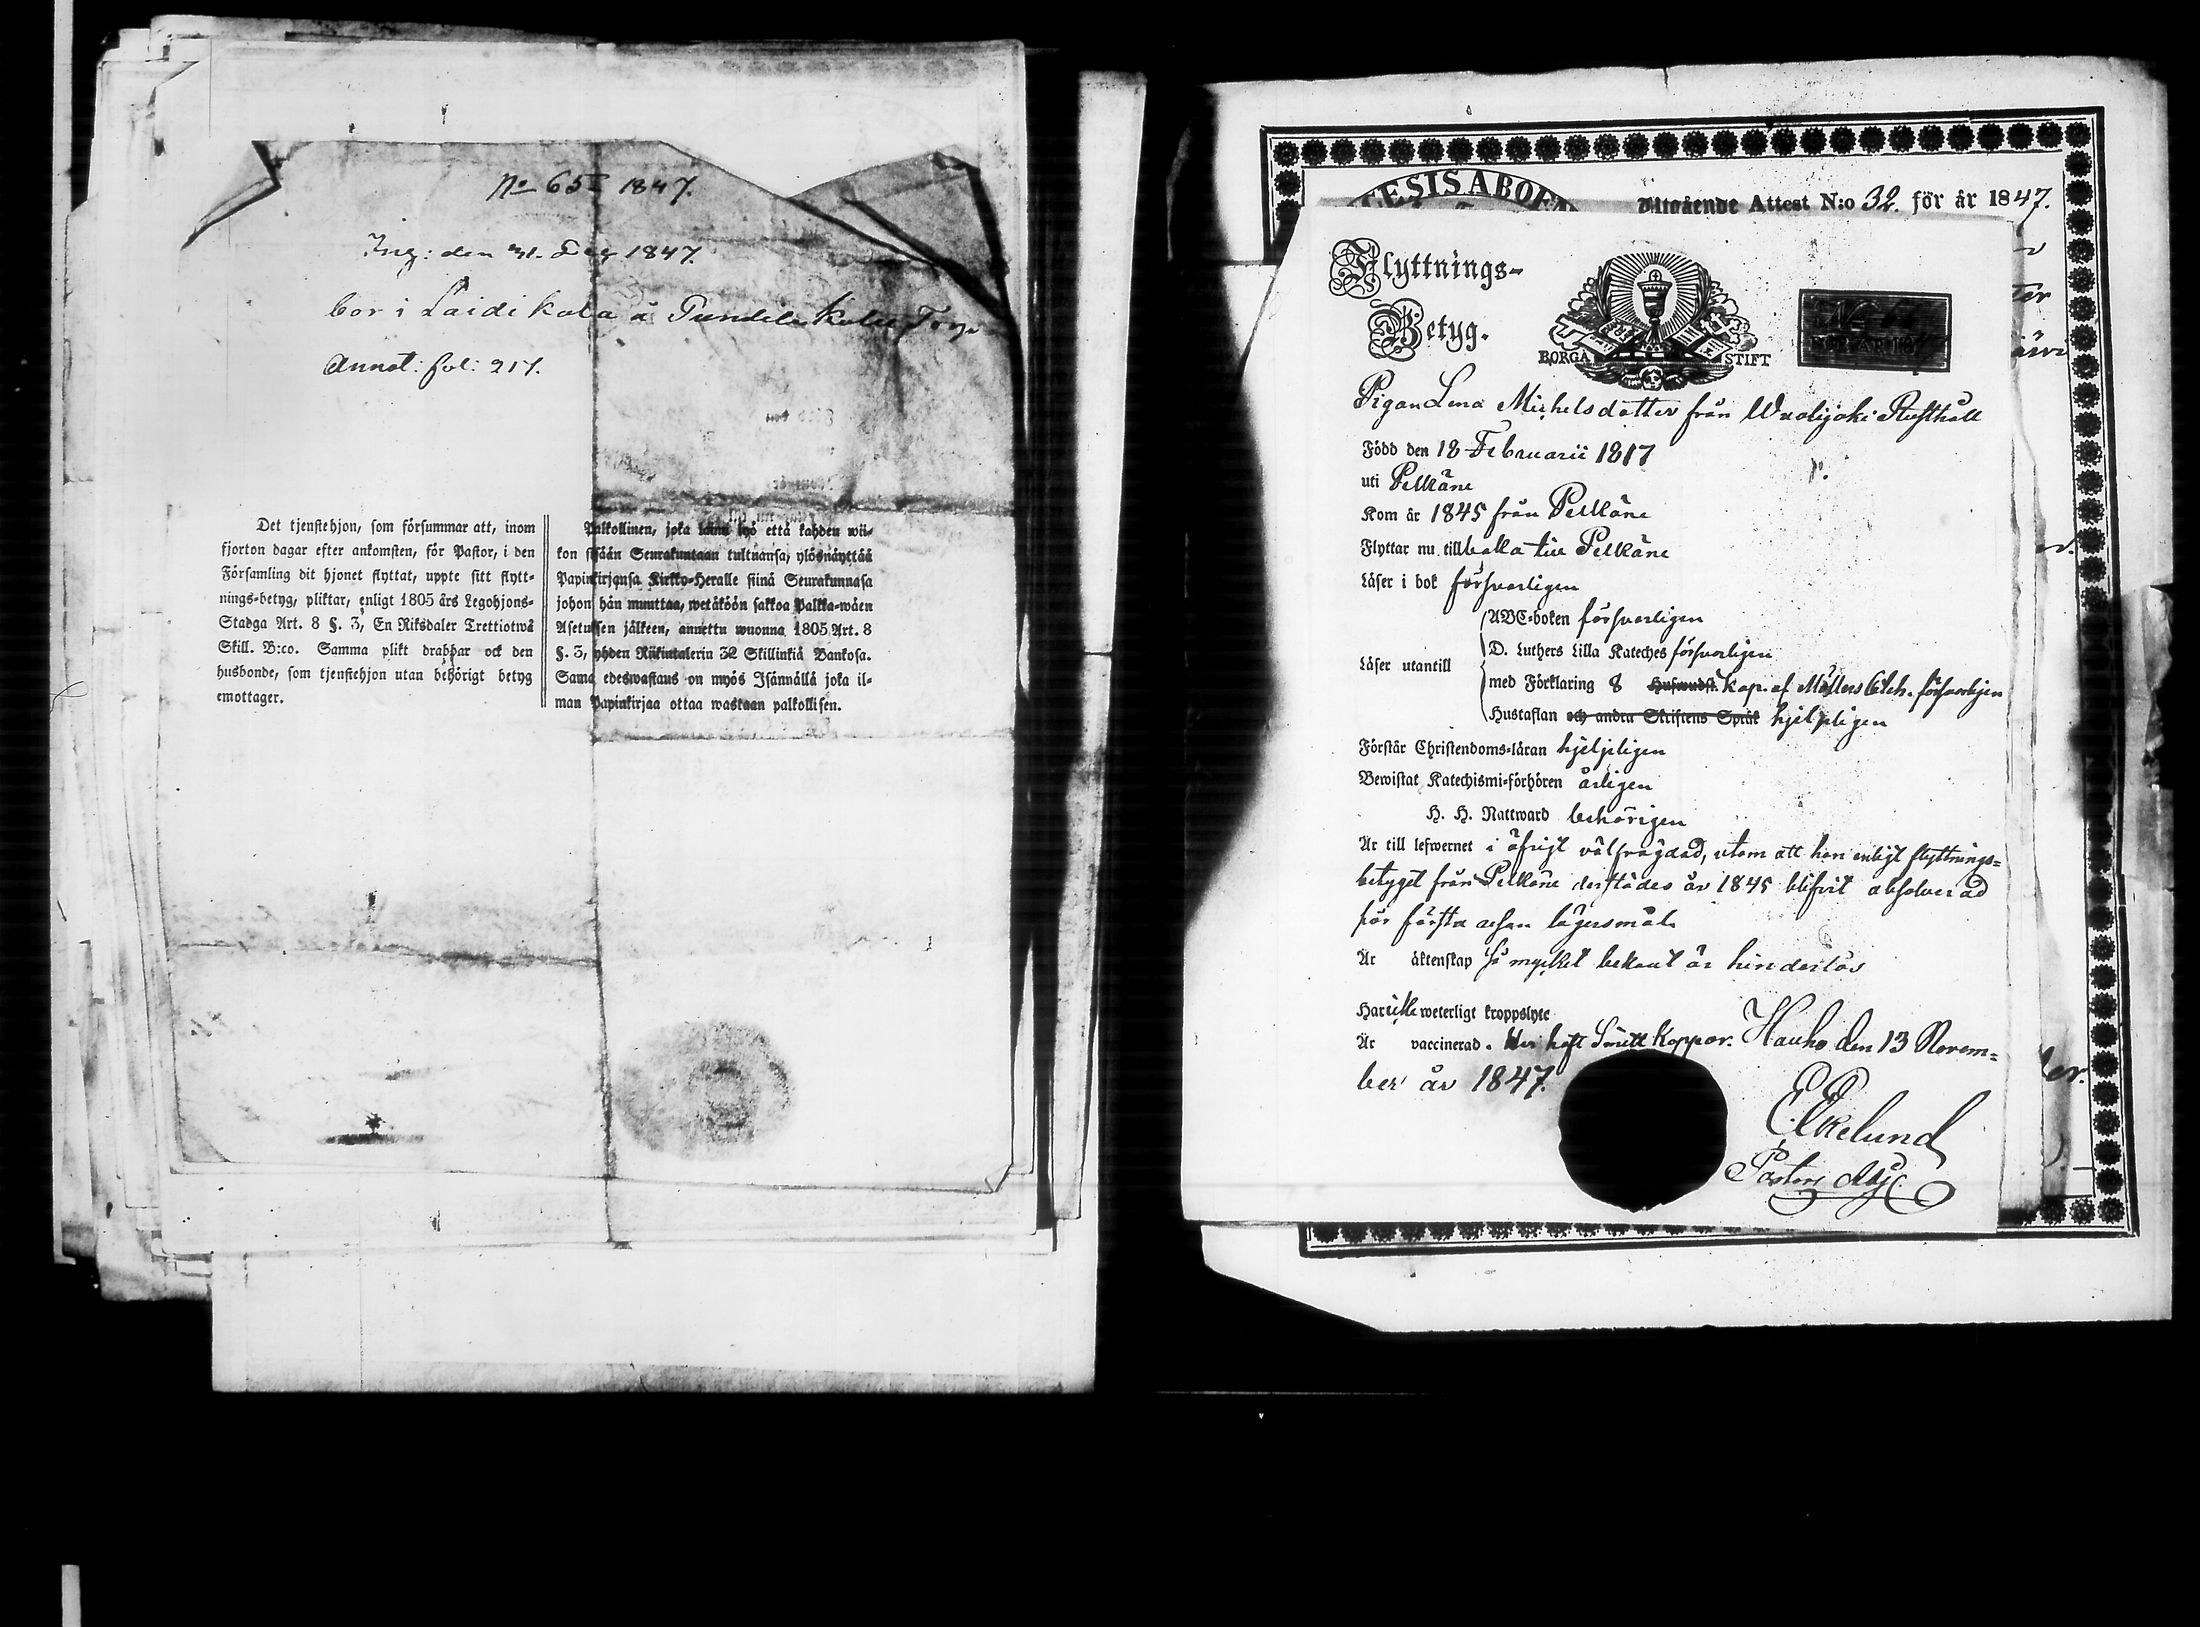 No 65 1847.
Ing: den 31. Dec 1847.
bor i Laidikala å
Annot: fol: 217.
Det tjenstehjon, som försummar att, inom
fjorton dagar efter ankomsten, för Pastor, i den
Församling dit hjonet flyttat, uppte sitt flytt-
nings-betyg, pliktar, enligt 1805 års Legohjons-
Stadga Art. 8 §. 3, En Riksdaler Trettiotwå
Skill. B:co. Samma plikt drabbar ock den
husbonde, som tjenstehjon utan behörigt betyg
emottager.
Palkollinen, joka lyö että kahden wii-
kon sisään Seurakuntaan tultuansa, ylösnäyttää
Papinkirjansa Kirkko-Heralle siinä Seurakunnasa
johon hän muuttaa, wetäköön sakkoa Palkka-wäen
Asetuksen jälkeen, annettu wuonna 1805 Art. 8
§. 3, yhden Riikintalerin 32 Skillinkiä Bankosa.
Sama edeswastaus on myös Isännällä joka il-
man Papinkirjaa ottaa wastaan palkollisen.
CESIS ABO
Utgående Attest N:o 32. för år 1847.
Flyttnings-
Betyg.
BORGÅ STIFT
No
FÖR ÅR 1847
Pigan Lena Michelsdotter från Wuolijoki Rusthåll
Född den 18 Februarii 1817
uti Pelkäne
Kom år 1845 från Pelkäne
Flyttar nu till baka till Pelkäne
Läser i bok försvarligen
Läser utantill
ABC-boken försvarligen
D. Luthers Lilla Kateches försvarligen
med Förklaring 8 Huswudst. Kap. af Möllers försvarligen
Hustaflan och andra Skriftens Språk hjelpligen
Förstår Christendoms-läran hjelpligen
Bewistat Katechismi-förhören årligen
H. H. Nattward behörigen
Är till lefwernet i öfrigt välfrägdad, utom att hon enligt flyttnings-
betyget från Pelkäne derstädes år 1845 blifvit absolverad
för första resan lägersmål.
Är äktenskap så mycket bekant är hinderlös
Har icke weterligt kroppslyte
Är vaccinerad. Har haft Smittkoppor. Hauho den 13 Novem-
ber år 1847.
E. Ekelund
Pastors Adj.